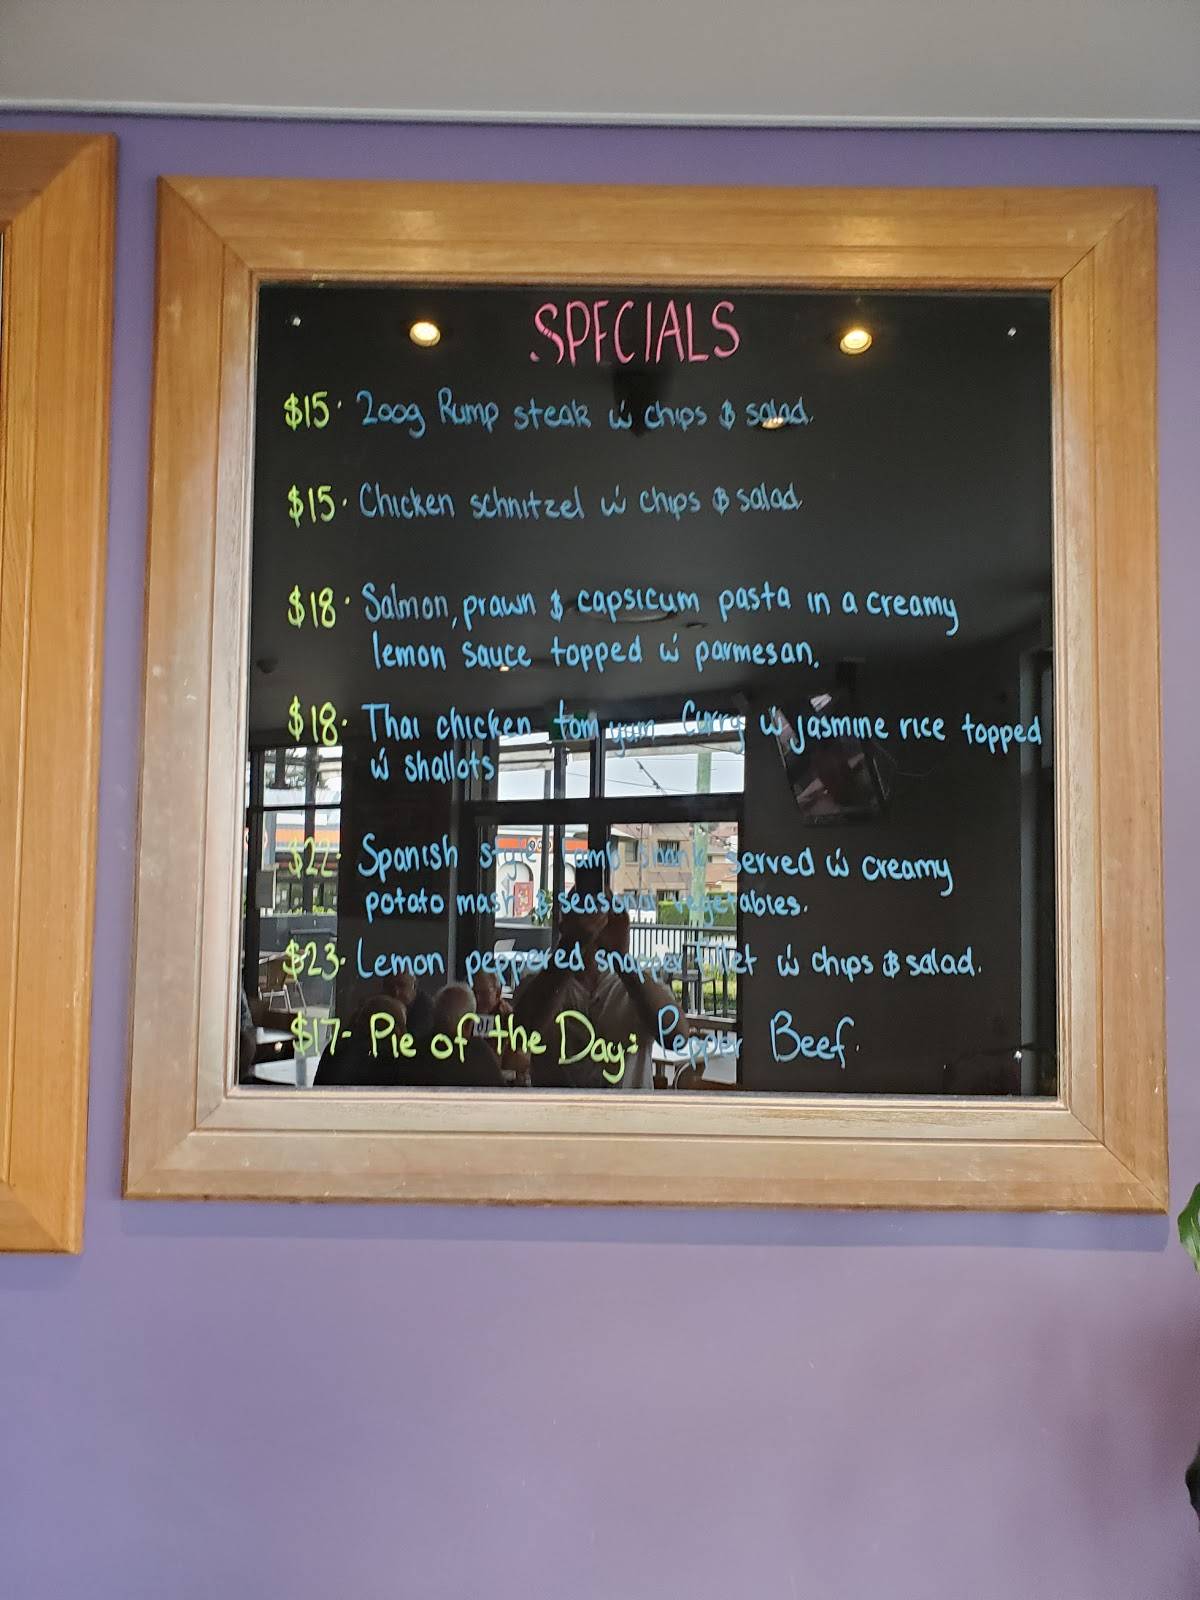 SPECIALS
$15· 200g Rump steak w chips & salad.
$15· Chicken schnitzel w chips & salad.
$18· Salmon, prawn & capsicum pasta in a creamy
lemon sauce topped w parmesan.
$18· Thai chicken tom yum Curry w jasmine rice topped
w shallots
Spanish style lamb shank served w creamy
potato mash & seasonal vegetables.
$23· Lemon peppered snapper fillet w chips & salad.
$17- Pie of the Day: Pepper Beef.